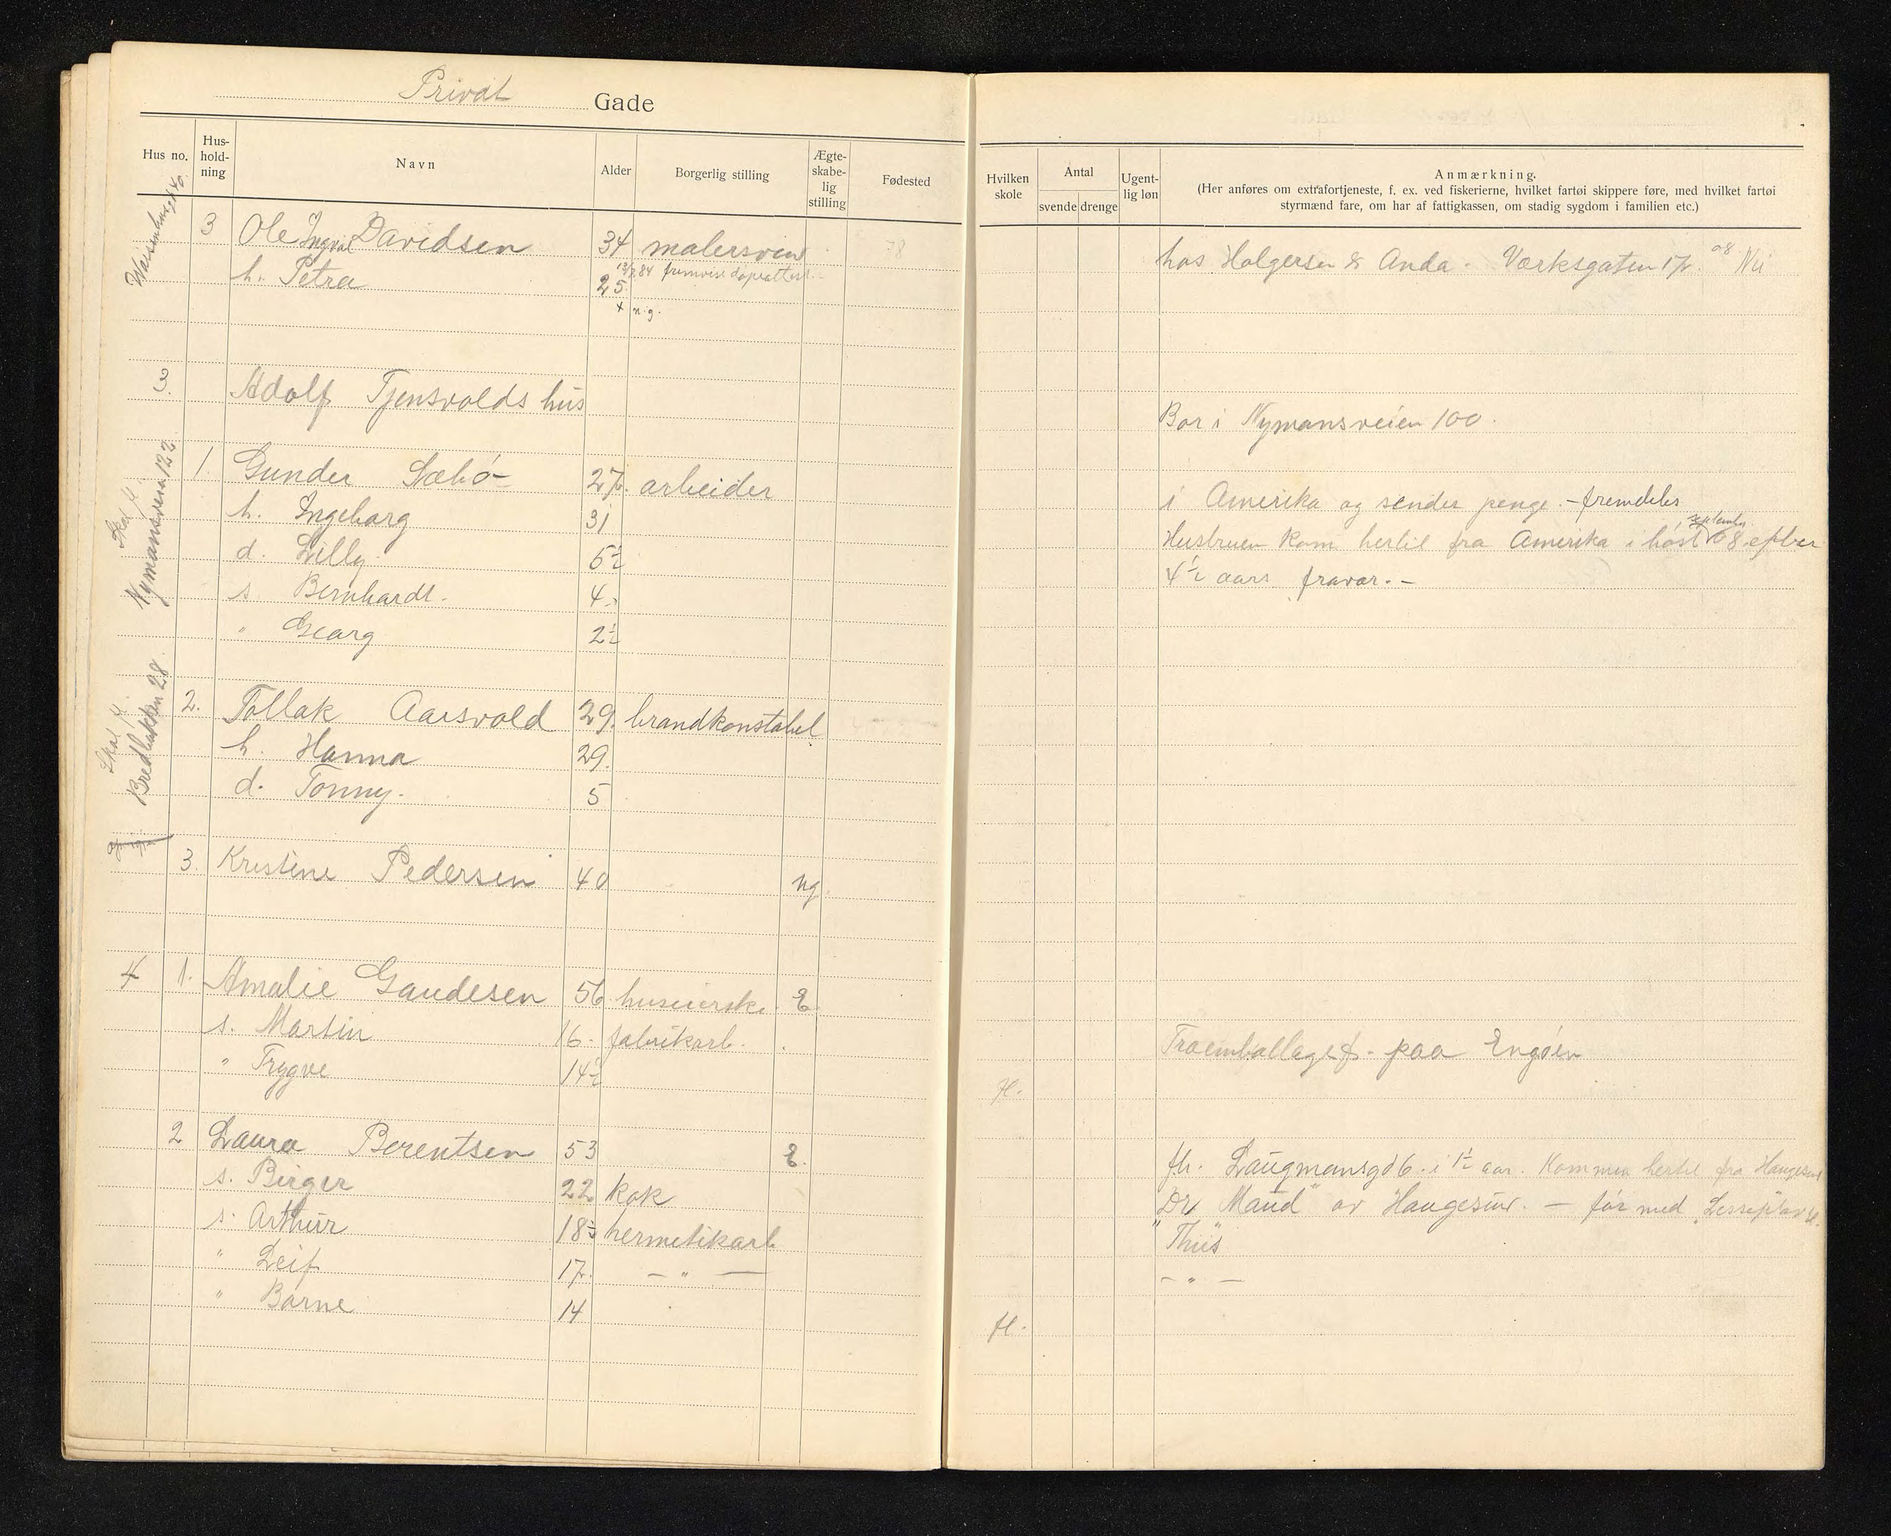 Privat Gade
Hus no. Hus-hold-ning Navn Alder Borgerlig stilling Ægte-skabe-lig stilling Fødested Hvilken skole Antal svende drenge Ugent-lig løn Anmærkning.
(Her anføres om extrafortjeneste, f. ex. ved fiskerierne, hvilket fartøi skippere føre, med hvilket fartøi
styrmænd fare, om har af fattigkassen, om stadig sygdom i familien etc.)
3 Ole Ingval Davidsen 34 malersven hos Holgersen & Anda. Værksgaten 17. 08 Nei
h. Petra 25
+ n.g.
3. Adolf Tjensvolds hus
Bor i Nymansveien 100.
Skat fl.
Nymansveien 122
1. Gunder Sæbø 27. arbeider i Amerika og sender penge. - fremdeles
h. Ingeborg 31 Hustruen kom hertil fra Amerika i høst september 08 efter
d. Lilly 5½ 4½ aars fravær. -
s. Bernhardt. 4.
" Georg 2½
Skat fl.
Bredbakken 28
2. Tollak Aarsvold 29. brandkonstabel
h. Hanna 29.
d. Tonny. 5
3. Kristine Pedersen 40 ng
4 1. Amalie Gaudesen 56 huseierske. E.
s. Martin 16. fabrikarb. Træemballagef. paa Engøen
" Trygve 14½ fl.
2 Laura Berentsen 53 E. fh. Laugmansgd 6. i 1½ aar. Kommen hertil fra Haugesund
s. Birger 22 kok Dr "Maud" av Haugesund. - før med
s. Arthur 18½ hermetikarb "Thiis"
" Leif 17. - " - - " -
" Barne 14 fl.